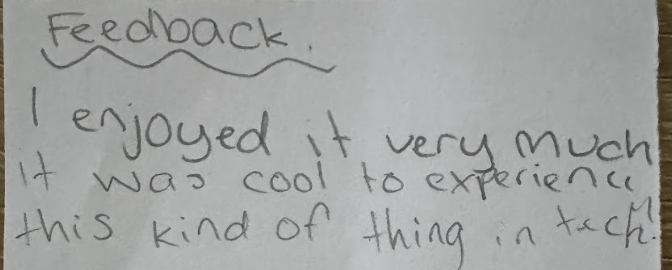 Feedback.
I enjoyed it very much
it was cool to experience
this kind of thing in tech!